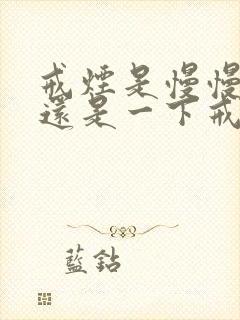 戒煙是慢慢
還是一下戒
藍鉆